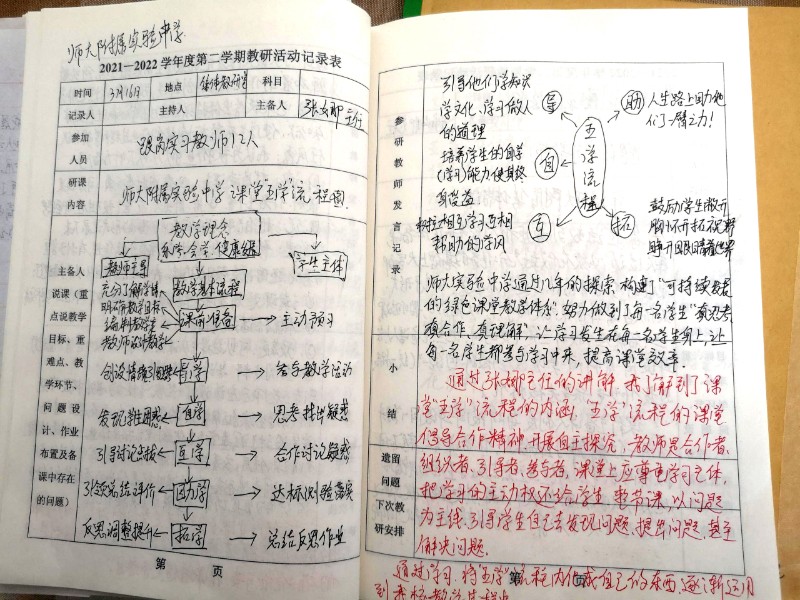 师大附属实验中学
2021—2022 学年度第二学期教研活动记录表
时间 3月16日 地点 科目
记录人 主持人 主备人 张娜 主任
参加人员 跟岗实习教师12人
研课内容 师大附属实验中学课堂"五学"流程图
主备人说课（重点说教学目标、重难点、教学环节、问题设计、作业布置及备课中存在的问题）
教学理念
教师主导 学生主体
充分了解学情 教学基本流程
明确教学目标
课前准备 → 主动预习
教师设计教学
创设情境引困惑 导学 → 参与教学活动
发现新生困惑 自学 → 思考找出疑惑
引导讨论点拨 互学 → 合作讨论疑惑
引领总结评价 助学 → 达标测验落实
反思调整提升 拓学 → 总结反思作业
第 页
参研教师发言记录
引导他们学知识
学文化、学习做人
的道理
导
助
人生路上助力他
们一臂之力！
五学流程
培养学生的自学
(学习)能力使其终
身受益
自
互
树立相互学习互相
帮助的学风
拓
鼓励学生敞开
胸怀开拓视野
睁开眼睛看世界
师大实验中学通过几年的探索，构建了"可持续发展
的绿色课堂教学体系"，努力做到了每一名学生"真思考
真合作、真理解"，让学习发生在每一名学生身上，让
每一名学生都参与学习中来，提高课堂效率。
小结
通过张娜主任的讲解，我了解到了课
堂"五学"流程的内涵，"五学"流程的课堂
倡导合作精神，开展自主探究，教师是合作者、
遗留问题
组织者、引导者、参与者，课堂上应尊重学习主体，
把学习的主动权还给学生，整节课，以问题
下次教研安排
为主线，引导学生自己去发现问题、提出问题、甚至
解决问题。
第 页
通过学习，将"五学"流程内化成自己的东西，逐渐运用
到